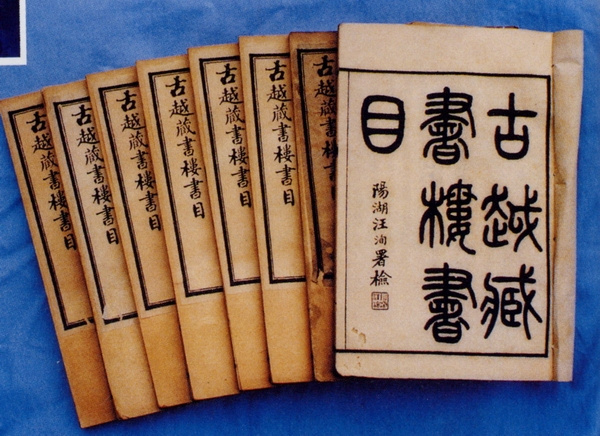 古越藏書樓書目
古越藏書樓書目
古越藏書樓書目
古越藏書樓書目
古越藏書樓書目
古越藏書樓書目
古越藏書樓書目
古越藏
書樓書
目
陽湖汪洵署檢